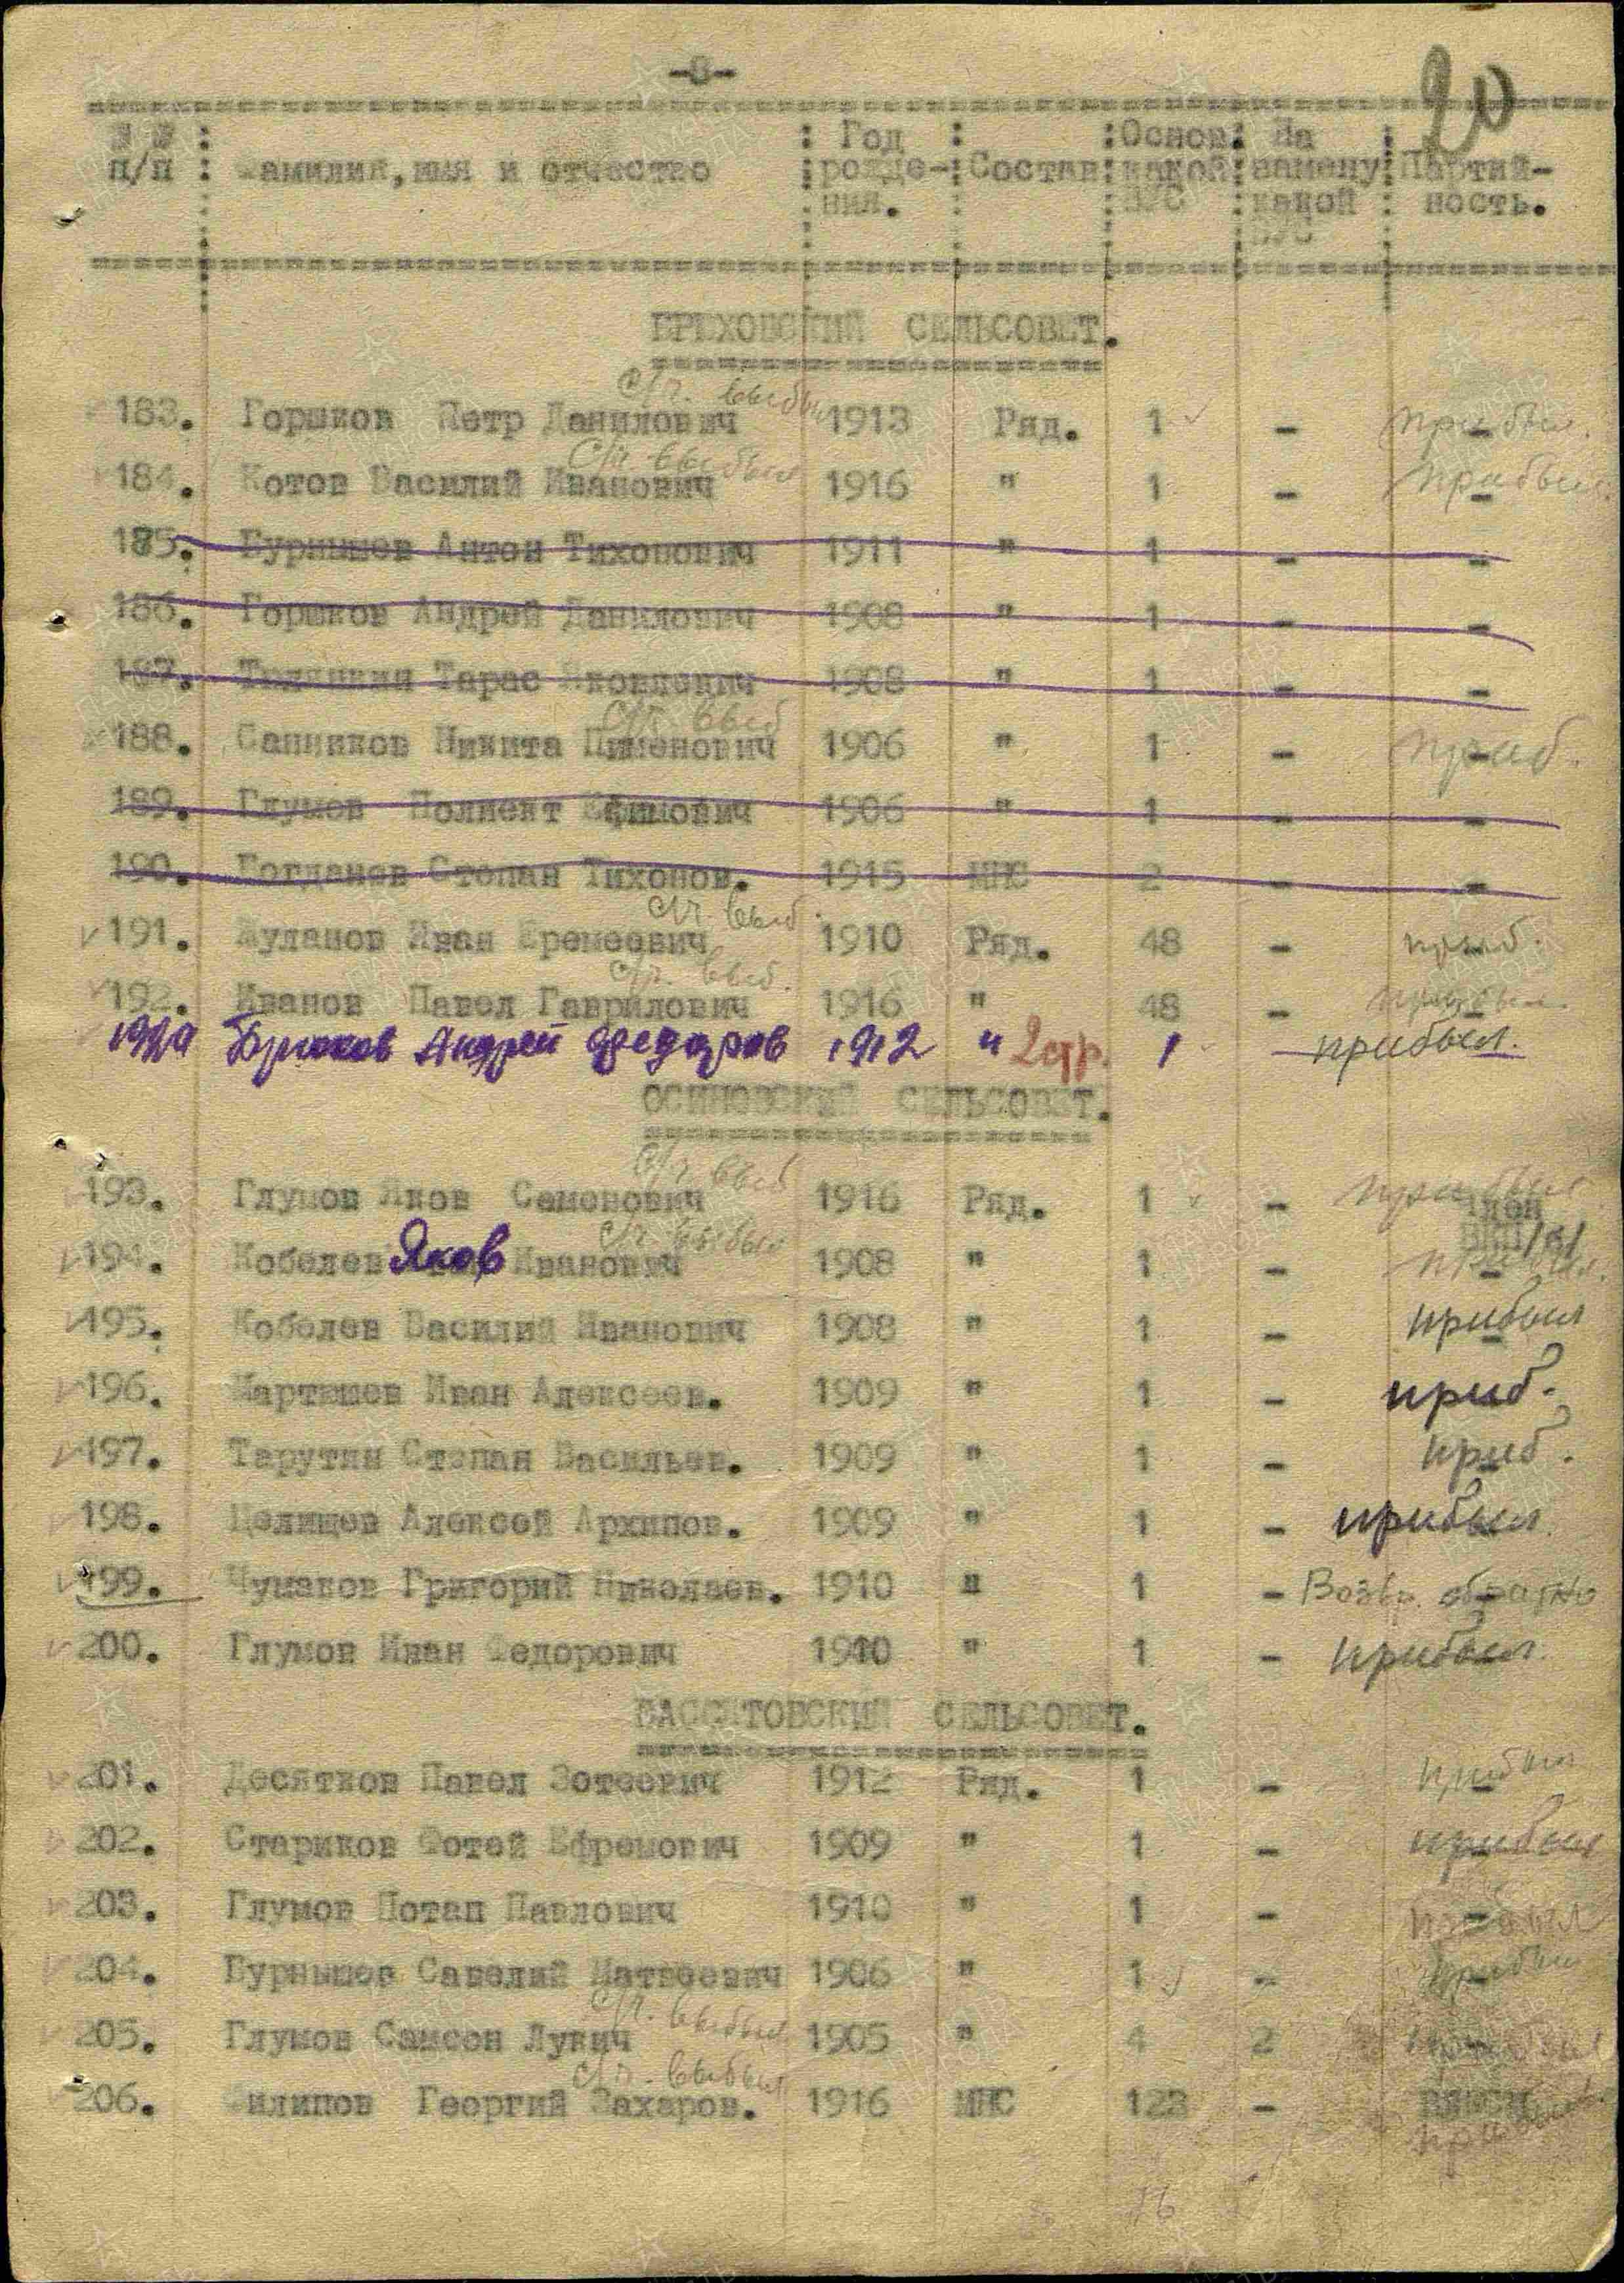 -8-
20
№ №
п/п
Фамилия, имя и отчество
Год
рожде-
ния.
Состав
Основ.
какой
ВУС
На
замену
какой
ВУС
Партий-
ность.
ГРЕХОВСКИЙ СЕЛЬСОВЕТ.
с/ч. выбыл
183. Горшков Петр Данилович 1913 Ряд. 1 - прибыл.
с/ч. выбыл
184. Котов Василий Иванович 1916 " 1 - прибыл.
185. Бурнышев Антон Тихонович 1911 " 1 - -
186. Горшков Андрей Данилович 1908 " 1 - -
187. Тарас Яковлевич 1908 " 1 - -
с/ч. выб
188. Санников Никита Пименович 1906 " 1 - приб.
189. Глумов Полиент Ефимович 1906 " 1 - -
190. Богданов Степан Тихонов. 1915 МНС 2 - -
с/ч. выб.
191. Жуланов Иван Еремеевич 1910 Ряд. 48 - приб.
с/ч. выб.
192. Иванов Павел Гаврилович 1916 " 48 - прибыл.
192а Бриков Андрей Федоров 1912 " 2стр. 1 - прибыл.
ОСИНОВСКИЙ СЕЛЬСОВЕТ.
с/ч выб
193. Глумов Яков Семенович 1916 Ряд. 1 - прибыл
член
ВКП/б/
с/ч. выбыл
194. Кобелев Яков Иванович 1908 " 1 - прибыл.
195. Кобелев Василий Иванович 1908 " 1 - прибыл
196. Мартюшев Иван Алексеев. 1909 " 1 - приб.
197. Тарутин Степан Васильев. 1909 " 1 - приб.
198. Целищев Алексей Архипов. 1909 " 1 - прибыл.
199. Чумаков Григорий Николаев. 1910 " 1 - Возвр. обратно
200. Глумов Иван Федорович 1910 " 1 - прибыл.
ВАССЯТОВСКИЙ СЕЛЬСОВЕТ.
201. Десятков Павел Зотеевич 1912 Ряд. 1 - прибыл
202. Стариков Фотей Ефремович 1909 " 1 - прибыл
203. Глумов Потап Павлович 1910 " 1 - прибыл
204. Бурнышев Савелий Матвеевич 1906 " 1 - прибыл
с/ч. выбыл
205. Глумов Самсон Лукич 1905 " 4 2 прибыл
с/ч. выбыл
206. Филипов Георгий Захаров. 1916 МНС 123 - ВЛКСМ
прибыл.
16